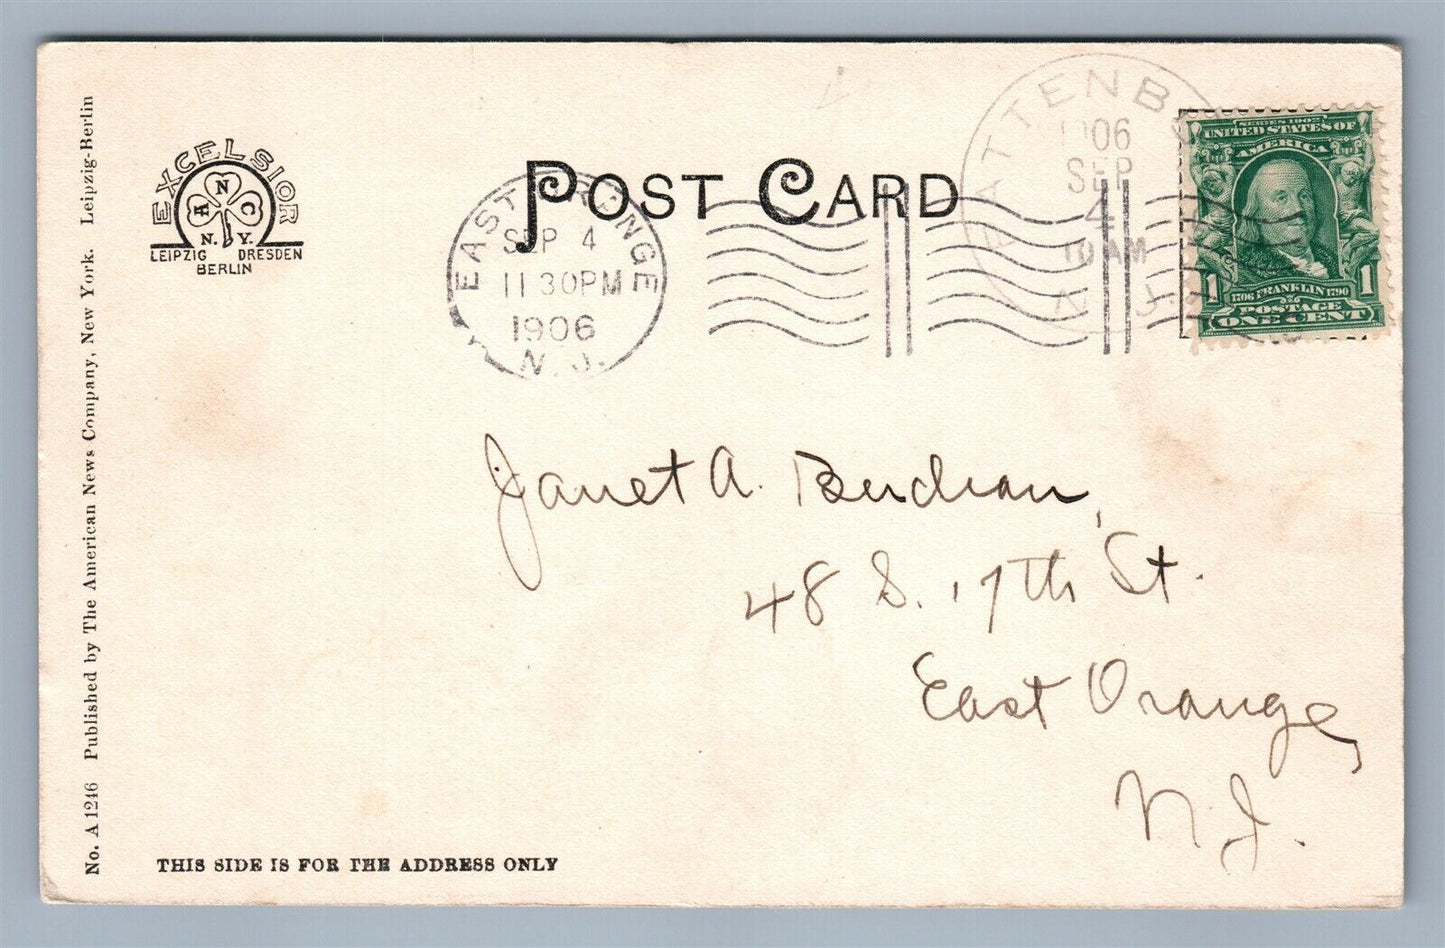 No. A 1246 Published by The American News Company, New York. Leipzig-Berlin
EXCELSIOR
A N C
N. Y.
LEIPZIG DRESDEN
BERLIN
POST CARD
EAST ORANGE
SEP 4
11 30 PM
1906
N. J.
1906
SEP
4
10 AM
N.J.
SERIES 1902
UNITED STATES OF
AMERICA
1 1
1706 FRANKLIN 1790
POSTAGE
ONE CENT
Janet A.
48 S. 17th St.
East Orange,
N.J.
THIS SIDE IS FOR THE ADDRESS ONLY